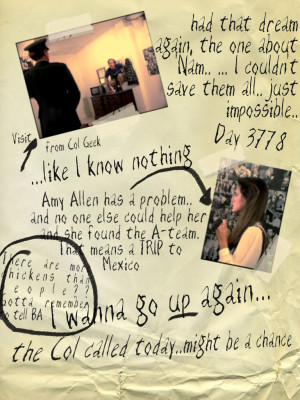 had that dream
again, the one about
Nam.. ... I couldn't
save them all.. just
impossible..
Day 3778
Visit from Col Geek
...like I know nothing
Amy Allen has a problem..
and no one else could help her
and she found the A-team.
That means a TRIP to
Mexico
There are more
chickens than
people?,
gotta remember
to tell BA
I wanna go up again...
the Col called today..might be a chance